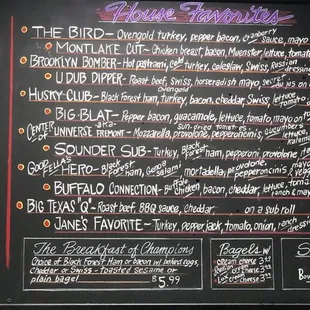 House Favorites
THE BIRD - Ovengold turkey, pepper bacon, cranberry sauce, mayo
MONTLAKE CUT - Chicken breast, bacon, Muenster, lettuce, tomato
BROOKLYN BOMBER - Hot pastrami, cold turkey, coleslaw, Swiss, Russian dressing
U DUB DIPPER - Roast beef, Swiss, horseradish mayo
HUSKY CLUB - Black Forest ham, ovengold turkey, bacon, cheddar, Swiss, lettuce, tomato
BIG BLAT - Pepper bacon, guacamole, lettuce, tomato, mayo
CENTER of UNIVERSE aka FREMONT - Mozzarella, provolone, pepperoncinis, sun-dried tomatoes, cucumbers, lettuce
SOUNDER SUB - Turkey, Black Forest ham, pepperoni, provolone
GOODFELLA'S HERO - Black forest ham, Genoa salami, mortadella, provolone, pepperoncinis
BUFFALO CONNECTION - chicken, bacon, cheddar, lettuce, tomato, ranch
BIG TEXAS "Q" - Roast beef, BBQ sauce, cheddar on a sub roll
JANE'S FAVORITE - Turkey, pepperjack, tomato, onion, ranch dressing
The Breakfast of Champions
Choice of Black Forest Ham or bacon w/ baked eggs,
Cheddar or Swiss - toasted sesame or
plain bagel $5.99
Bagels w/
cream cheese 3.99
cheese 3.99
Lox cheese